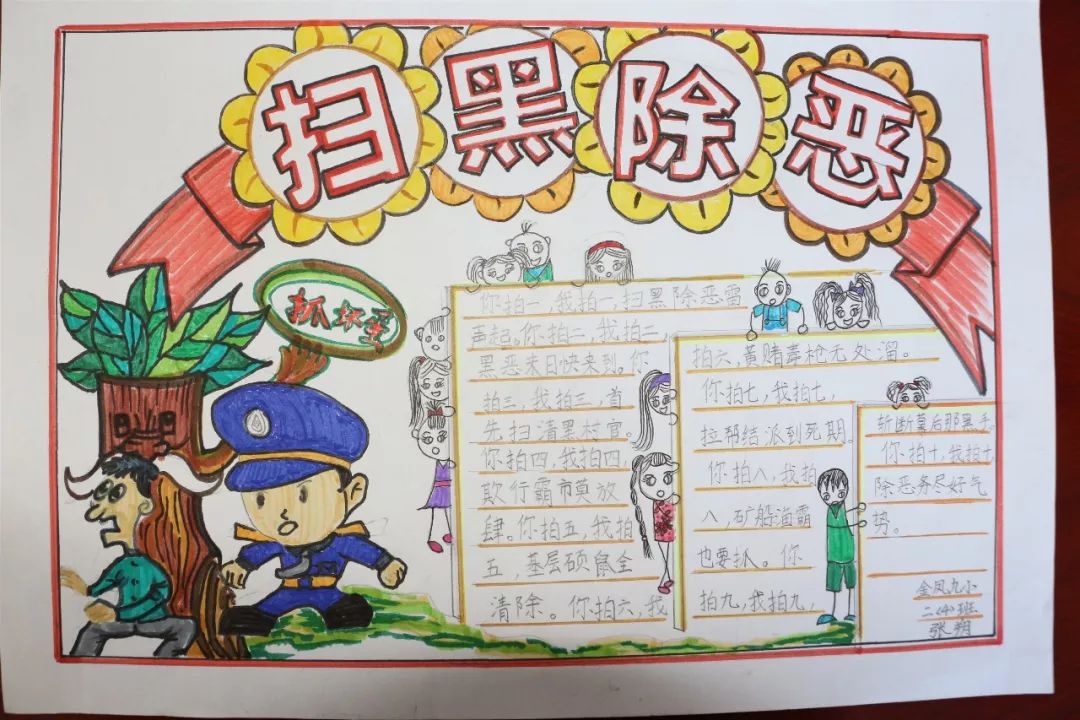 扫黑除恶
抓坏蛋
你拍一,我拍一,扫黑除恶雷
声起。你拍二,我拍二,
黑恶末日快来到。你
拍三,我拍三,首
先扫清黑村官。
你拍四,我拍四,
欺行霸市莫放
肆。你拍五,我拍
五,基层硕鼠全
清除。你拍六,我
拍六,黄赌毒枪无处溜。
你拍七,我拍七,
拉帮结派到死期。
你拍八,我拍
八,矿船渔霸
也要抓。你
拍九,我拍九,
斩断莫后那黑手
你拍十,我拍十,
除恶务尽好气
势。
金凤九小
二(4)班
张翔